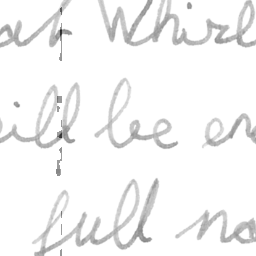 Whirl
will be en
full no